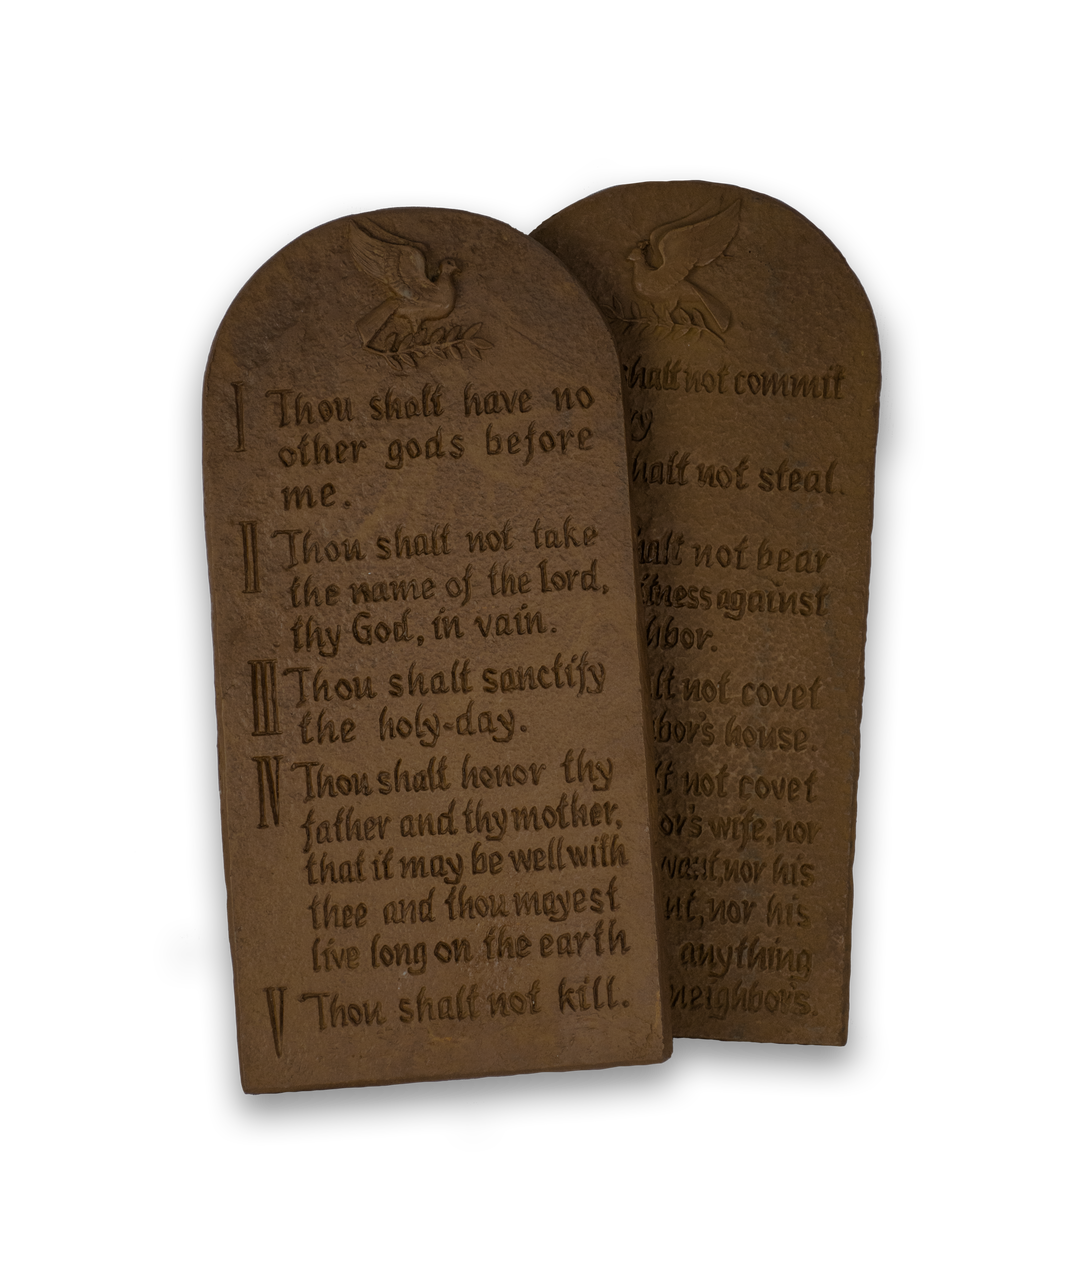 I Thou shalt have no
other gods before
me.
II Thou shalt not take
the name of the Lord,
thy God, in vain.
III Thou shalt sanctify
the holy-day.
IV Thou shalt honor thy
father and thy mother,
that it may be well with
thee and thou mayest
live long on the earth
V Thou shalt not kill.
shalt not commit
ry
shalt not steal.
halt not bear
itness against
hbor.
lt not covet
bor's house.
lt not covet
or's wife, nor
vant, nor his
nt, nor his
anything
neighbor's.